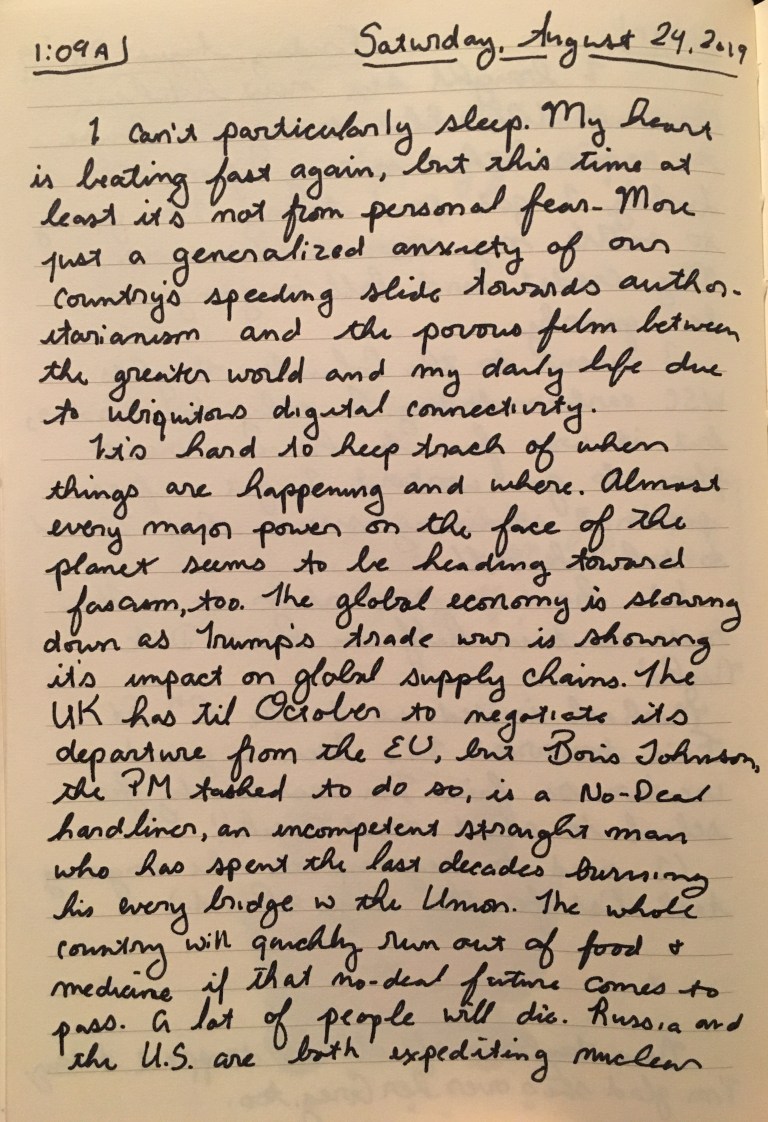 1:09A
Saturday, August 24, 2019
I can't particularly sleep. My heart
is beating fast again, but this time at
least it's not from personal fear. More
just a generalized anxiety of our
country's speeding slide towards author-
itarianism and the porous film between
the greater world and my daily life due
to ubiquitous digital connectivity.
It's hard to keep track of when
things are happening and where. Almost
every major power on the face of the
planet seems to be heading toward
fascism, too. The global economy is slowing
down as Trump's trade war is showing
it's impact on global supply chains. The
UK has til October to negotiate its
departure from the EU, but Boris Johnson,
the PM tasked to do so, is a No-Deal
hardliner, an incompetent straight man
who has spent the last decades burning
his every bridge w the Union. The whole
country will quickly run out of food &
medicine if that no-deal future comes to
pass. A lot of people will die. Russia and
the U.S. are both expediting nuclear